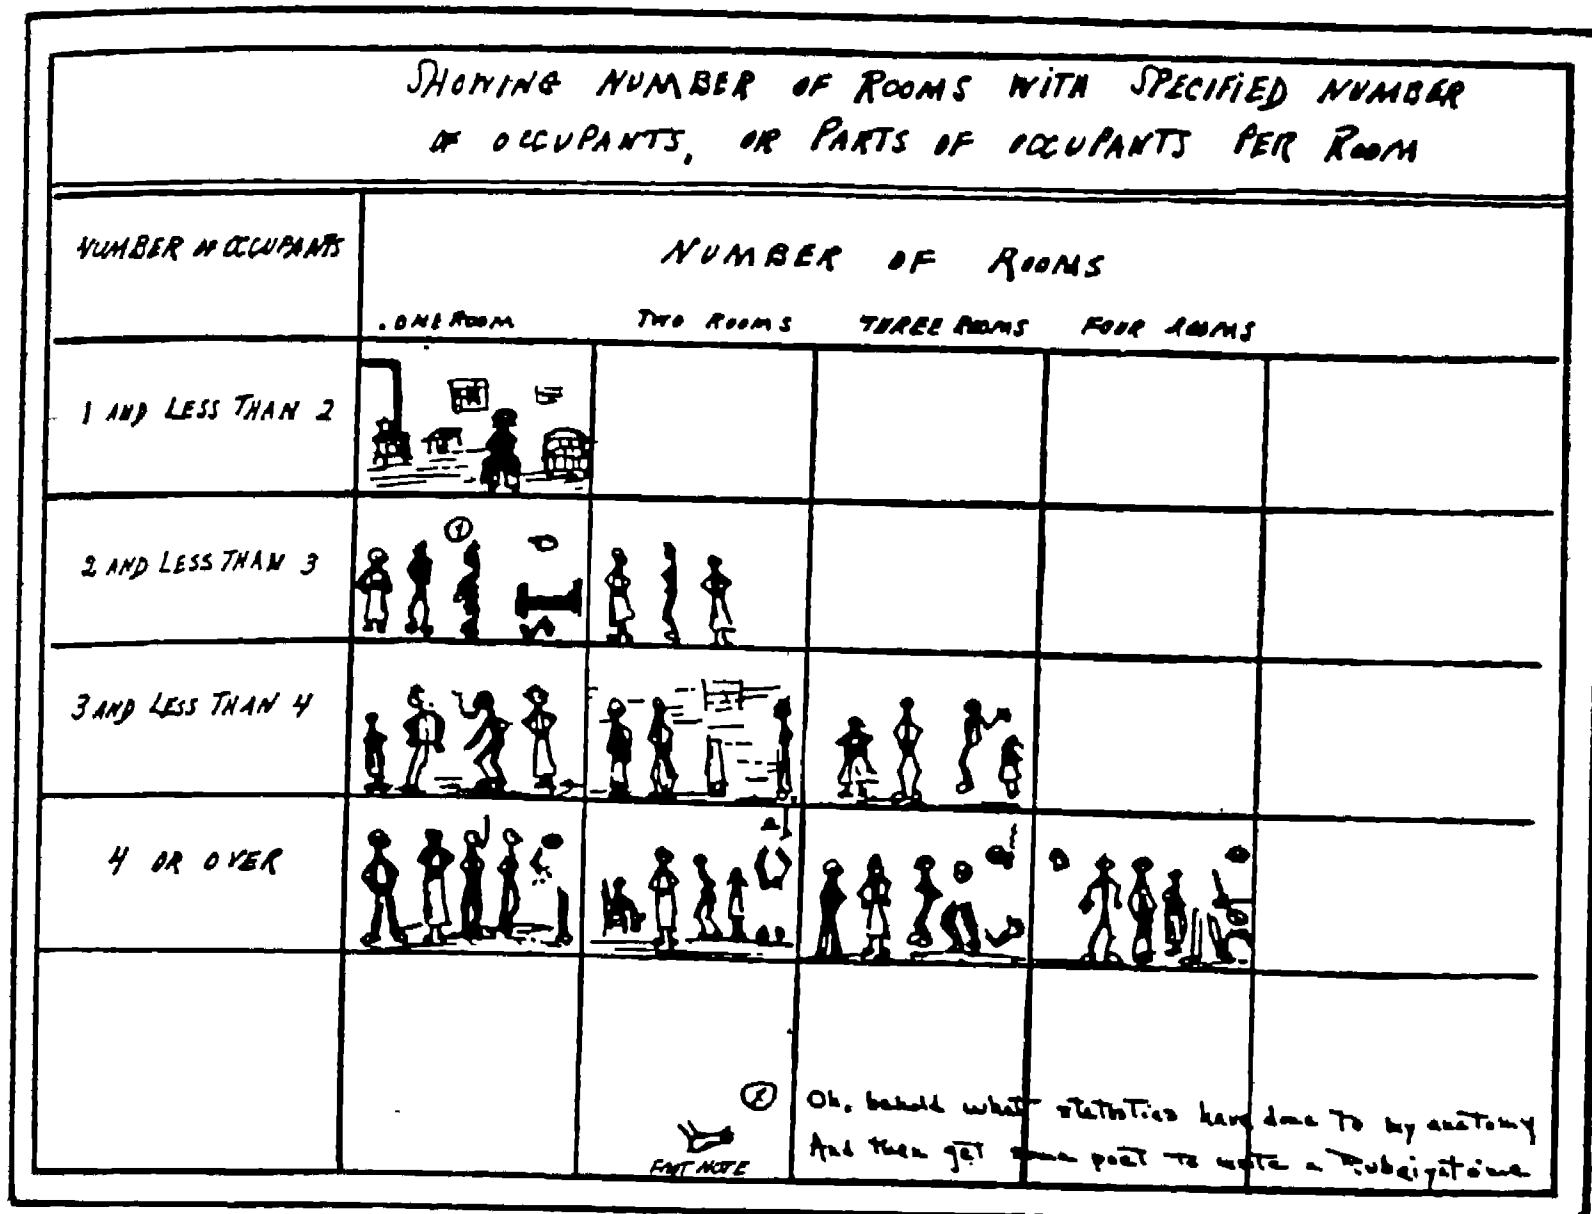 SHOWING NUMBER OF ROOMS WITH SPECIFIED NUMBER
OF OCCUPANTS, OR PARTS OF OCCUPANTS PER ROOM
NUMBER OF OCCUPANTS
NUMBER OF ROOMS
ONE ROOM TWO ROOMS THREE ROOMS FOUR ROOMS
1 AND LESS THAN 2
2 AND LESS THAN 3
1
3 AND LESS THAN 4
4 OR OVER
1 Oh, behold what statistics have done to my anatomy
And then get some poet to write a
FOOT NOTE